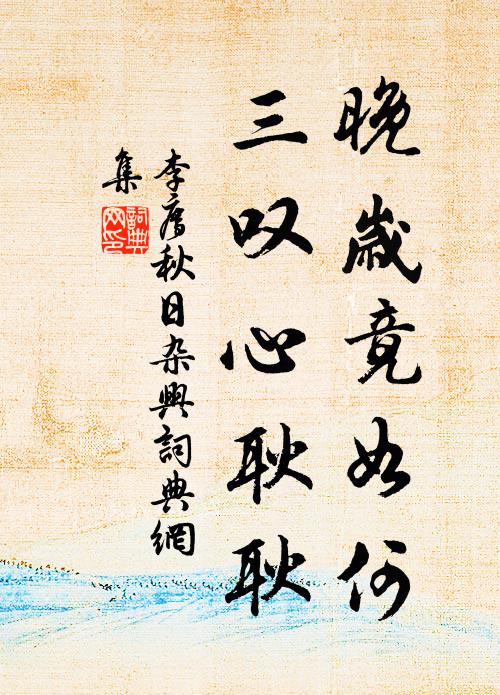 晚歲竟如何
三叹心耿耿
李廌秋日杂興詞典網
集
詞典
网印